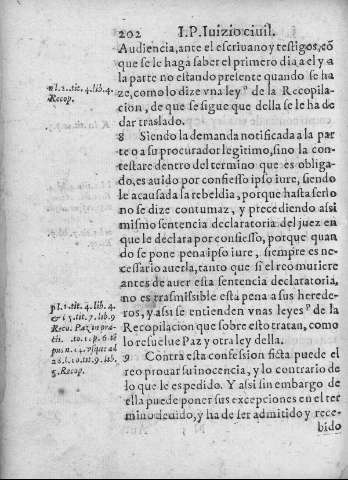 202 I.P. Iuizio ciuil.
Audiencia, ante el escriuano y testigos, cõ
que se le haga saber el primero dia a el y a
la parte no estando presente quando se ha
ze, como lo dize vna ley ⁿ de la Recopila-
cion, de que se sigue que della se le ha de
dar traslado.
n l. 2. tit. 4. lib. 4.
Recop.
8 Siendo la demanda notificada a la par
te o a su procurador legitimo, sino la con-
testare dentro del termino que es obliga-
do, es auido por confiesso ipso iure, siendo
le acusada la rebeldia, porque hasta serlo
no se dize contumaz, y precediendo assi
mismo sentencia declaratoria del juez en
que le declara por confiesso, porque quan
do se pone pena ipso iure, siempre es ne-
cessario auerla, tanto que si el reo muriere
antes de auer esta sentencia declaratoria,
no es trasmissible esta pena a sus herede-
ros, y assi se entienden vnas leyes ᵖ de la
Recopilacion que sobre esto tratan, como
lo resuelue Paz y otra ley della.
p l. 1. tit. 4. lib. 4.
& l 5. tit. 7. lib. 9
Reco. Paz in pra-
5. Recop.
9 Contra esta confession ficta puede el
reo prouar su inocencia, y lo contrario de
lo que le es pedido. Y assi sin embargo de
ella puede poner sus excepciones en el ter
mino deuido, y ha de ser admitido y rece-
bido